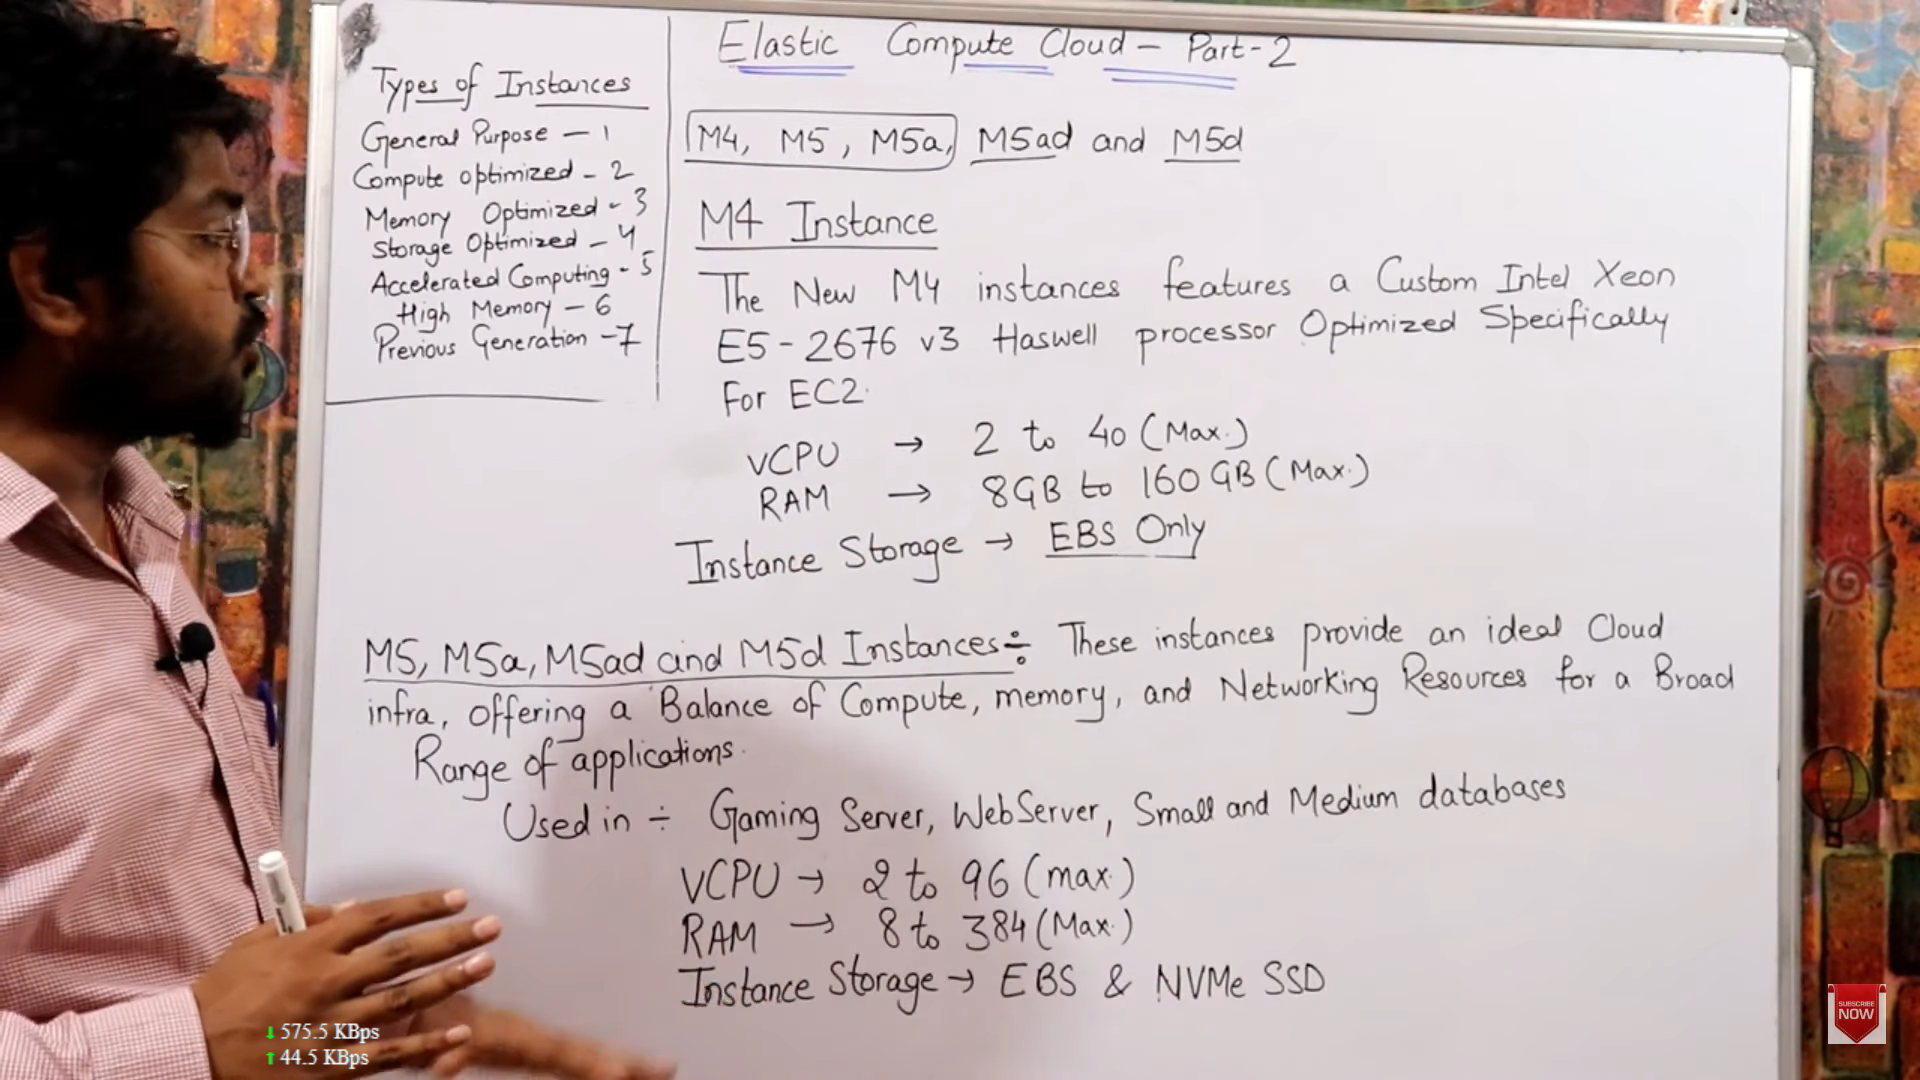 Elastic Compute Cloud - Part-2
Types of Instances
General Purpose - 1
Compute optimized - 2
Memory Optimized - 3
Storage Optimized - 4
Accelerated Computing - 5
High Memory - 6
Previous Generation - 7
M4, M5, M5a, M5ad and M5d
M4 Instance
The New M4 instances features a Custom Intel Xeon
E5-2676 v3 Haswell processor Optimized Specifically
For EC2.
VCPU → 2 to 40 (Max.)
RAM → 8GB to 160 GB (Max.)
Instance Storage → EBS Only
M5, M5a, M5ad and M5d Instances÷ These instances provide an ideal Cloud
infra, offering a Balance of Compute, memory, and Networking Resources for a Broad
Range of applications.
Used in ÷ Gaming Server, WebServer, Small and Medium databases
VCPU → 2 to 96 (max.)
RAM → 8 to 384 (Max.)
Instance Storage → EBS & NVMe SSD
SUBSCRIBE
NOW
↓ 575.5 KBps
↑ 44.5 KBps